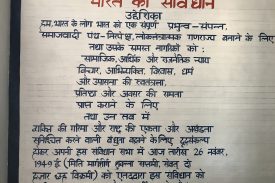 भारत का संविधान
उद्देशिका
हम, भारत के लोग भारत को एक संपूर्ण प्रभुत्व-सम्पन्न,
समाजवादी पंथ-निरपेक्ष, लोकतन्त्रात्मक गणराज्य बनाने के लिए
तथा उसके समस्त नागरिकों को :
सामाजिक, आर्थिक और राजनैतिक न्याय
विचार, अभिव्यक्ति, विश्वास, धर्म
और उपासना की स्वतंत्रता,
प्रतिष्ठा और अवसर की समता
प्राप्त कराने के लिए
तथा उन सब में
व्यक्ति की गरिमा और राष्ट्र की एकता और अखंडता
सुनिश्चित करने वाली बंधुता बढ़ाने के लिए दृढ़संकल्प
होकर अपनी इस संविधान सभा में आज तारीख 26 नवंबर,
1949 ई (मिति मार्गशीर्ष शुक्ला सप्तमी, संवत् दो
हजार छह विक्रमी) को एतद्द्वारा इस संविधान को